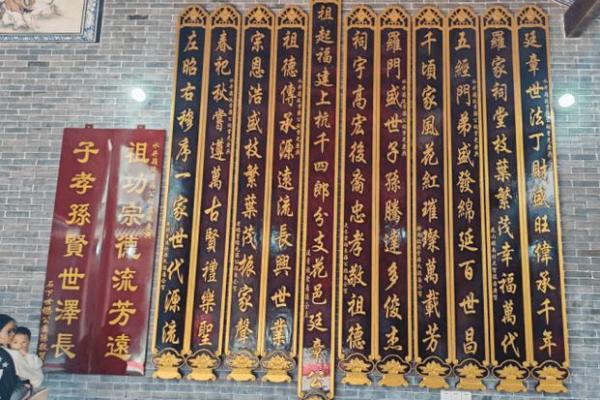 廷章世法丁財盛旺偉承千年
羅家祠堂枝葉繁茂幸福萬代
五經門弟盛發綿延百世昌
千頃家風花紅璀璨萬載芳
羅門盛世子孫騰達多俊杰
祠宇高宏後裔忠孝敬祖德
祖起福建上杭千四郎分支花邑廷章公
祖德傳承源遠流長興世業
宗恩浩盛枝繁葉茂振家聲
春祀秋嘗遵萬古賢禮樂聖
左昭右穆序一家世代源流
祖功宗德流芳遠
子孝孫賢世澤長